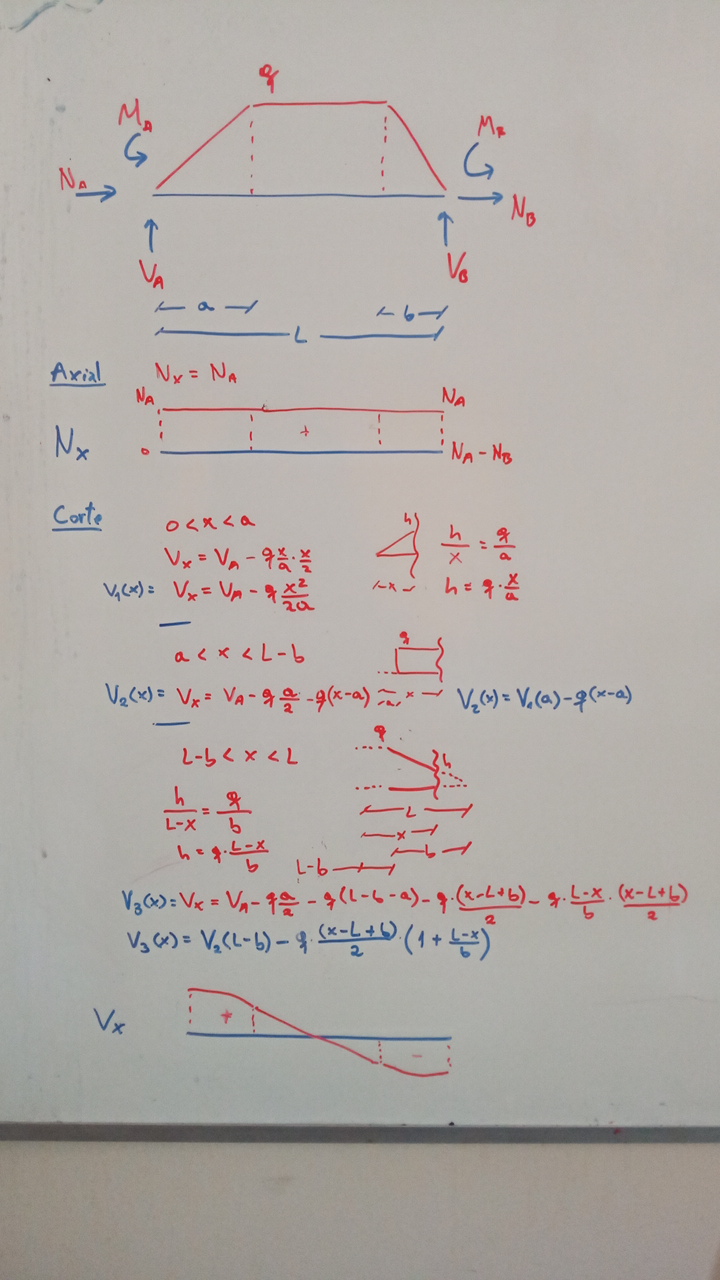 q
M_A
M_B
N_A
N_B
V_A
V_B
a
b
L
Axial N_x = N_A
N_A N_A
N_x 0 + N_A - N_B
Corte 0 < x < a
V_x = V_A - q x/a · x/2
h
h/x = q/a
V_1(x) = V_x = V_A - q x²/2a
x
h = q · x/a
a < x < L-b
q
V_2(x) = V_x = V_A - q a/2 - q(x-a)
a x
V_2(x) = V_1(a) - q(x-a)
L-b < x < L
q
h
h/(L-x) = q/b
L
x
h = q · (L-x)/b
b
L-b
V_3(x) = V_x = V_A - q a/2 - q(L-b-a) - q · (x-L+b)/2 - q · (L-x)/b · (x-L+b)/2
V_3(x) = V_2(L-b) - q · (x-L+b)/2 · (1 + (L-x)/b)
V_x + -